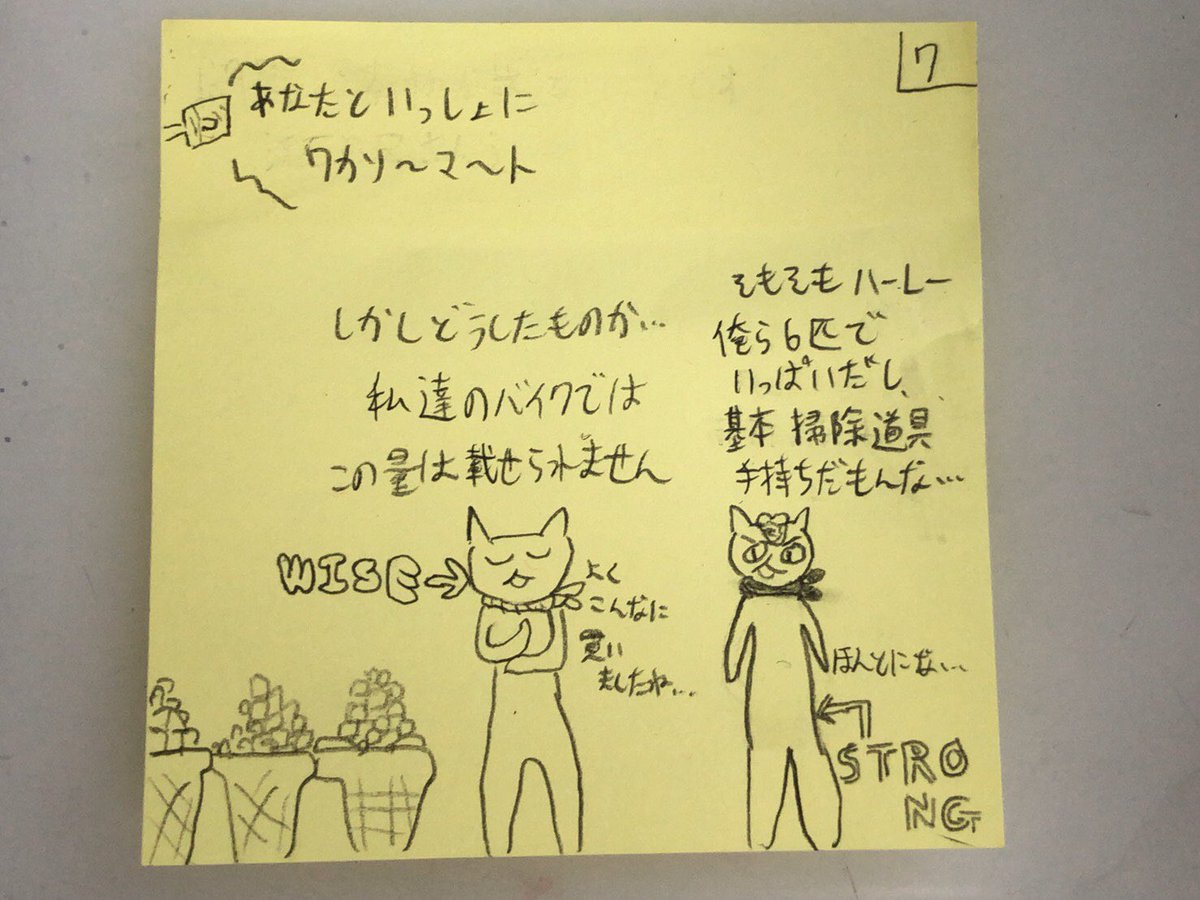 7
あなたといっしょに
ワカソ〜マ〜ト
しかしどうしたものか…
私達のバイクでは
この量は載せられません
そもそもハーレー
俺ら6匹で
いっぱいだし、
基本掃除道具
手持ちだもんな…
WISE
よく
こんなに
買い
ましたね…
ほんとにな…
STRO
NG